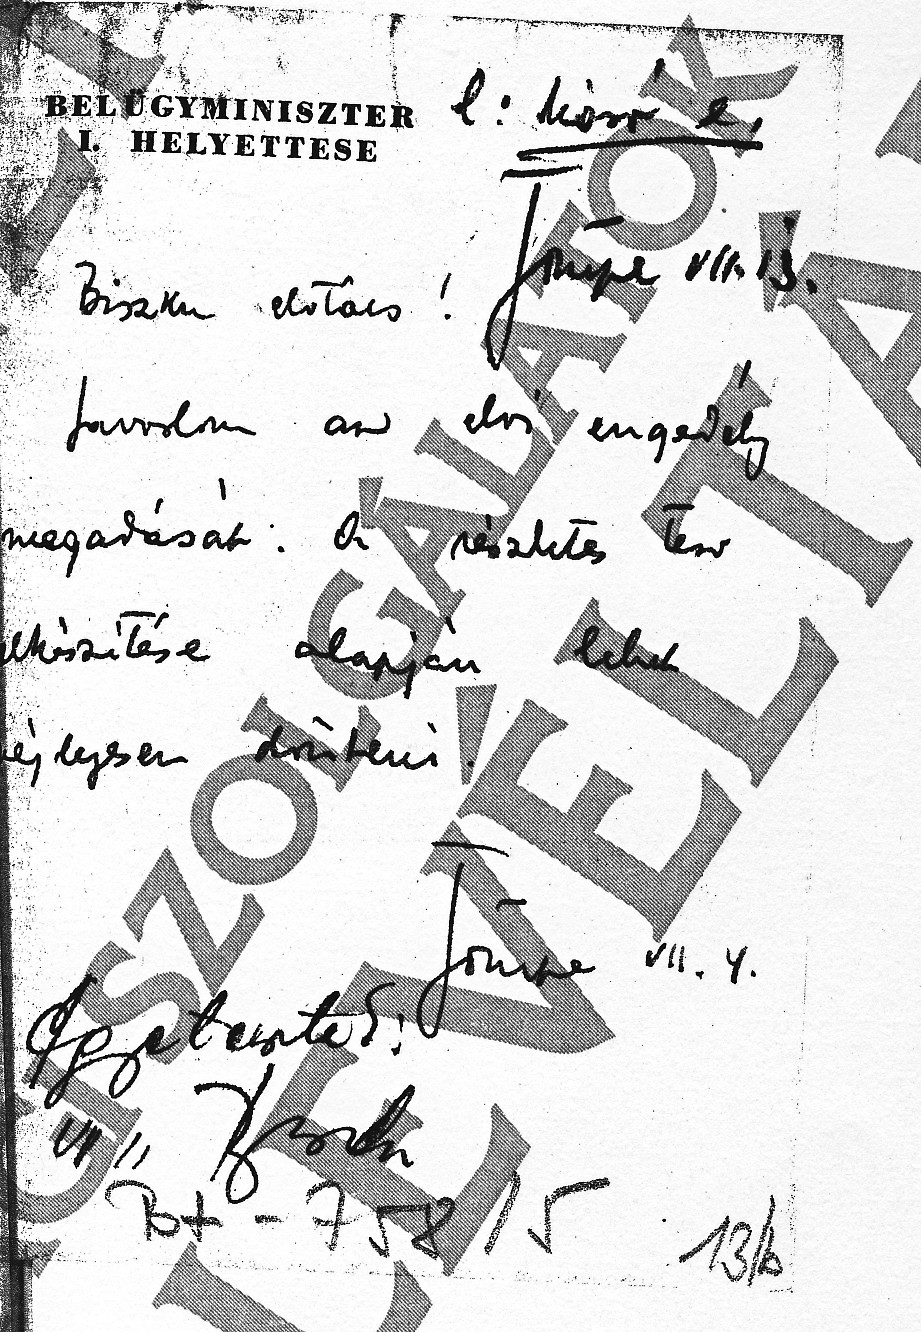 BELÜGYMINISZTER
I. HELYETTESE
l:
Biszku elvtárs!
Tömpe VII. 13.
Javaslom az elvi engedély
megadását. A részletes terv
elkészítése alapján lehet
véglegesen dönteni.
Tömpe VII. 4.
Egyetértek!
VII 11
Bt - 758/5
13/b
SZOLGÁLATOK
LEVÉLTÁ